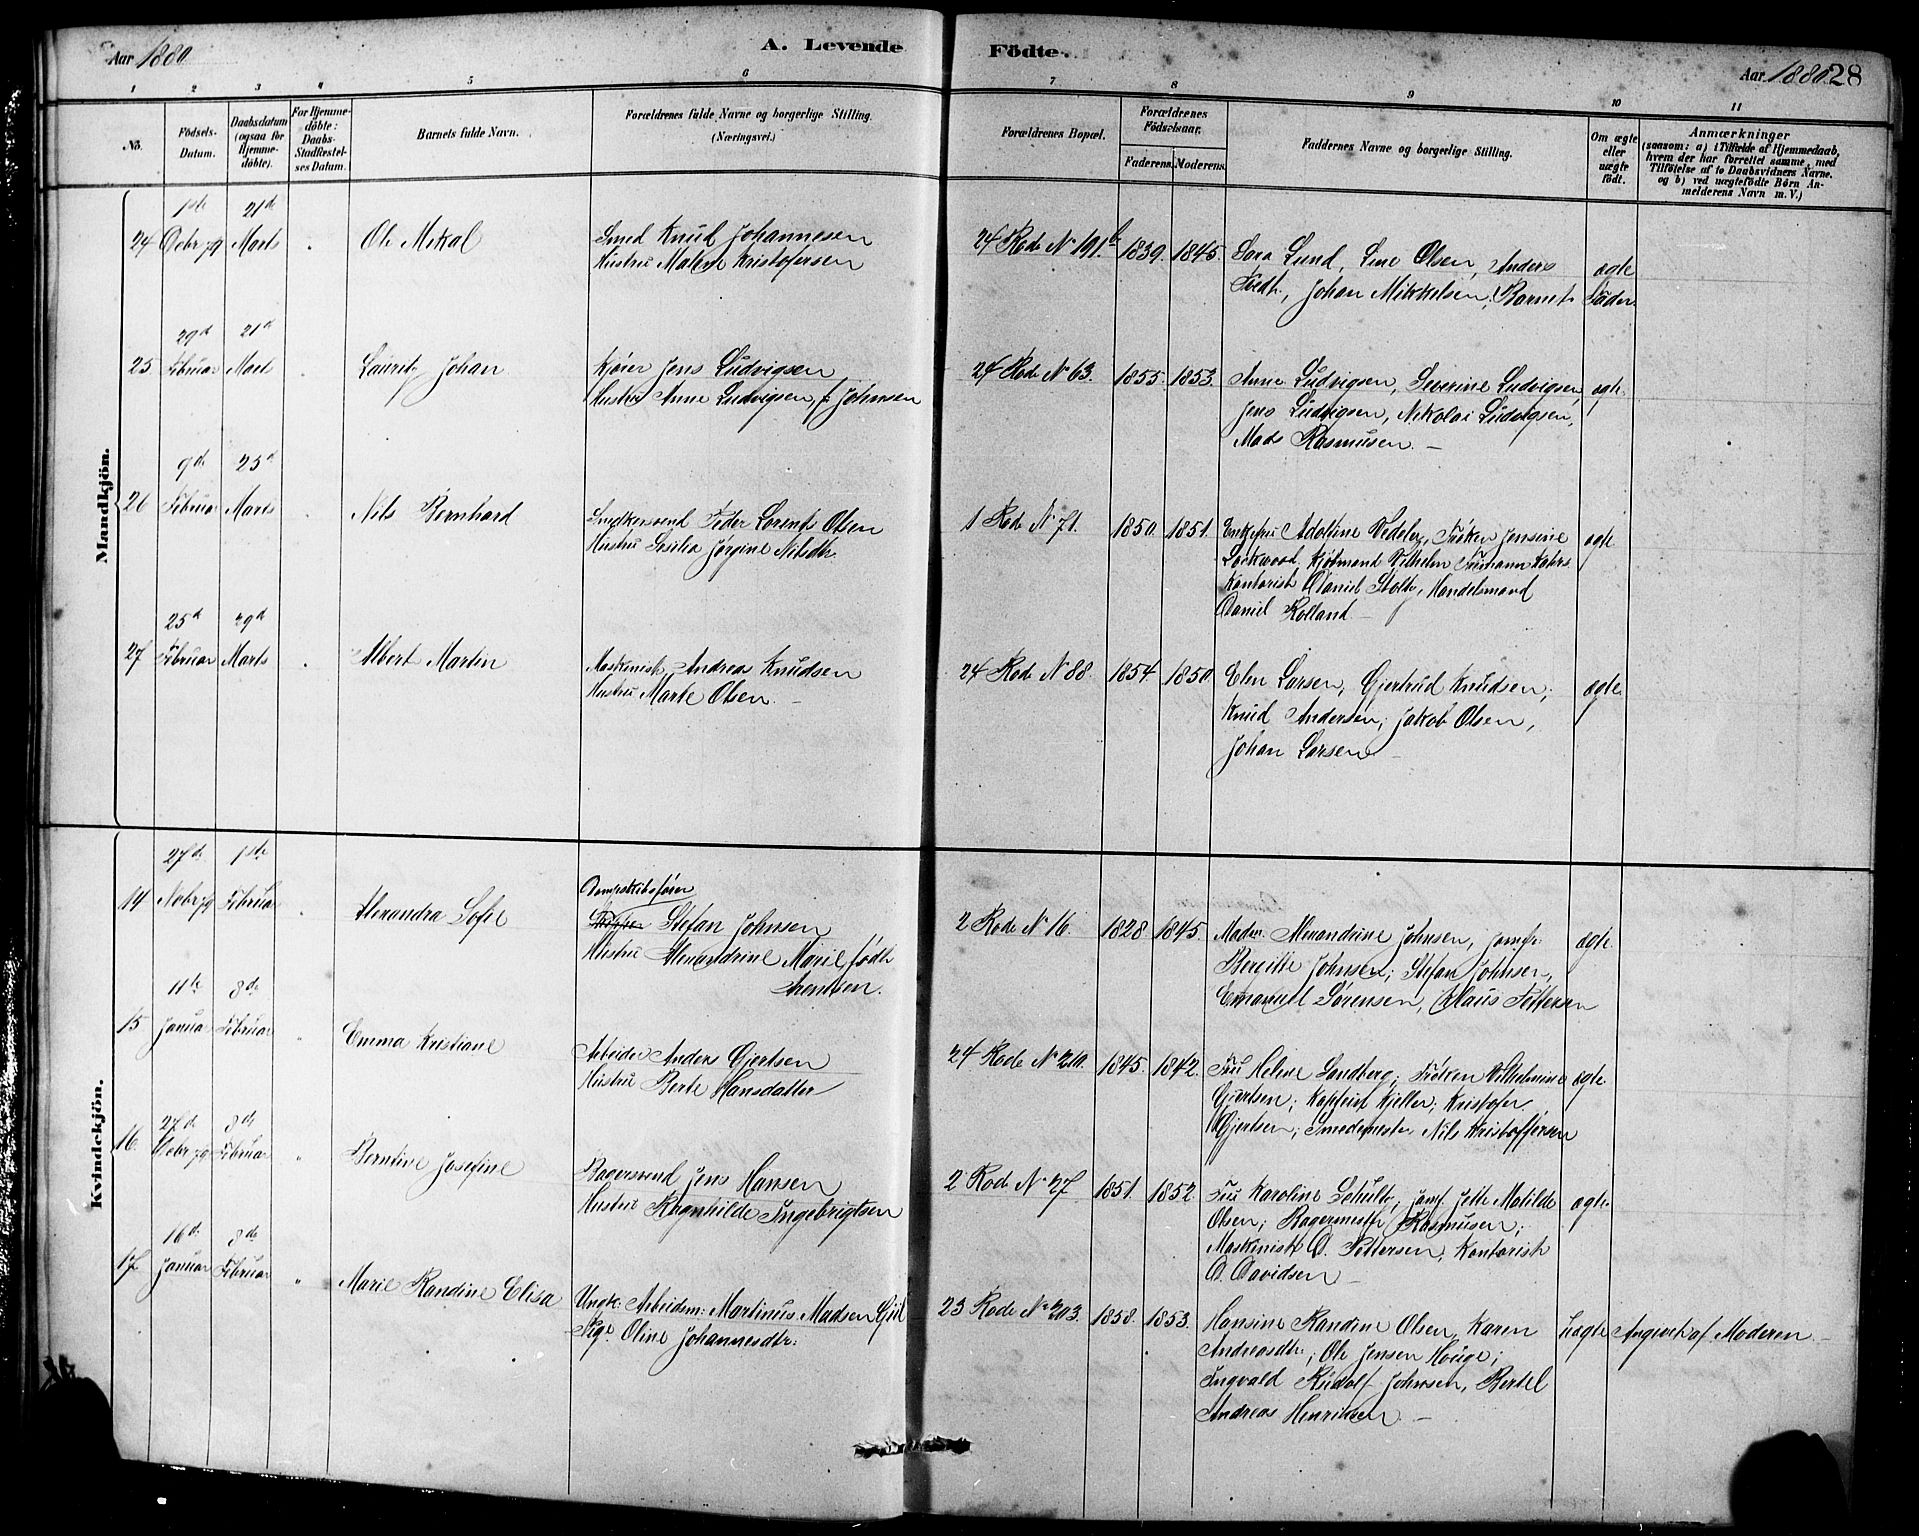 Aar 1880.
A. Levende Födte.
Aar 1880. 28
1 2 3 4 5 6 7 8 9 10 11
No.
Födsels-Datum.
Daabsdatum (ogsaa for Hjemme-döbte).
For Hjemme-döbte: Daabs-Stadfæstel-ses Datum.
Barnets fulde Navn.
Forældrenes fulde Navne og borgerlige Stilling.
(Næringsvei.)
Forældrenes Bopæl.
Forældrenes Födselsaar.
Faderens. Moderens.
Faddernes Navne og borgerlige Stilling.
Om ægte eller uægte födt.
Anmærkninger
(saasom: a) i Tilfælde af Hjemmedaab,
hvem der har forrettet samme, med
Tilföielse af to Daabsvidners Navne.
og b) ved uægtefödte Börn An-
melderens Navn m. V.)
Mandkjön.
1ste 21d
24 Octbr 79 Marts Ole Mikal
Smed Knud Johannesen
Hustru Malene Kristofersen
24 Rode N 191b 1839. 1845.
Sara Lund, Line Olsen, Anders
Johan Mikkelsen, Barnets Fader.
ægte
29d 21d
25. Februar Marts Laurits Johan
Kjører Jens Ludvigsen
Hustru Anne Ludvigsen, f. Johnsen
24 Rode N 63. 1855. 1853.
Anne Ludvigsen, Severine Ludvigsen,
Jens Ludvigsen, Nikolai Ludvigsen,
Mads Rasmusen. —
ægte.
9d 25d
26 Februar Marts Nils Bernhard
Snedkersvend Peder Lorents Olsen
Hustru Sesilia Jørgine Nilsdtr.
1 Rode N 71. 1850. 1851.
Enkefru Adoltine Vedeler, Frøken Jensine
Lockwood, Kjøbmand Vilhelm
Kontorist Daniel Stolt, Handelsmand
Daniel Rolland —
ægte
25d 29d
27 Februar Marts Albert Martin
Maskinist Andreas Knudsen
Hustru Marte Olsen. —
24 Rode N 88. 1854. 1850.
Elen Larsen, Gjertrud Knudsen;
Knud Andersen; Jakob Olsen,
Johan Larsen.
ægte.
Kvindekjön.
27de 1ste
14 Novbr 79 Februar Alexandra Sofie
Dampskibsfører
Skipper Stefan Johnsen
Hustru Alexandrine Marie født
Arentsen.
2 Rode N 16. 1828 1845.
Madm. Alexandrine Johnsen, Jomfr.
Bergitte Johnsen; Stefan Johnsen,
Emanuel Sørensen, Claus Pettersen
ægte.
11te 8de
15 Januar Februar Emma Kristiane
Arbeider Anders Gjertsen
Hustru Berte Hansdatter
24 Rode N 210. 1845. 1842.
Fru Helene Sandberg; Frøken Vilhelmine
Gjertsen; Kjeller; Kristofer
Gjertsen; Smedemester Nils Kristoffersen
ægte.
27d 8de
16. Octbr 79 Februar Berntine Josefine
Bagersvend Jens Hansen
Hustru Ragnhilde Ingebrigtsen
2 Rode N 27 1851. 1852.
Fru Karoline Schultz, Jomf. Jette Matilde
Olsen; Bagermester Rasmusen;
Maskinist O. Pettersen, Kontorist
O. Davidsen —
ægte.
16de 8de
17 Januar Februar Marie Randine Elisa
Ungk: Arbeidsm: Martinus Madsen
Pige Oline Johannesdtr.
23 Rode N 203. 1858. 1853.
Hansine Randine Olsen, Karen
Andreasdtr; Ole Jensen Houge;
Ingvald Rudolf Johnsen, Bertel
Andreas Henriksen. —
Uægte Angivet af Moderen. —